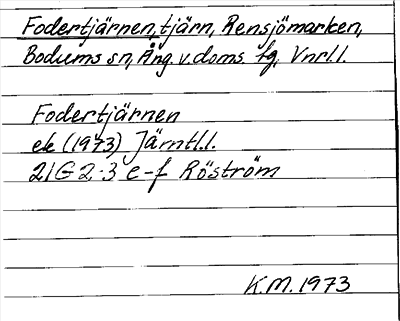 Fodertjärnen, tjärn, Rensjömarken,
Bodums sn, Ång. v. doms fg, Vnrl.l.
Fodertjärnen
ek (1973) Jämtl.l.
21G 2-3 e-f Röström
K.M. 1973